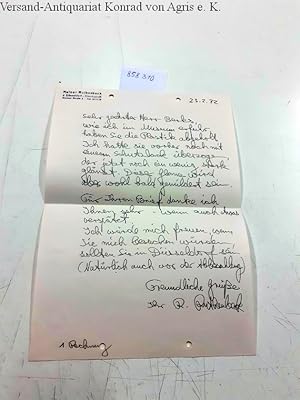 Versand-Antiquariat Konrad von Agris e. K.
858310
Reiner Ruthenbeck
4 Düsseldorf
23.2.72
Sehr geehrter Herr
wie ich im Museum erfuhr,
haben Sie die Plastik abgeholt.
Ich hatte sie vorher noch mit
einem Schutzlack überzogen,
der jetzt noch ein wenig stark
glänzt. Diese wird
aber wohl bald gemildert sein.
Für Ihren Brief danke ich
Ihnen sehr - wenn auch etwas
verspätet.
Ich würde mich freuen, wenn
Sie mich besuchen würden,
sollten Sie in Düsseldorf sein.
(Natürlich auch vor der
Freundliche Grüße
Ihr R. Ruthenbeck
1 Rechnung